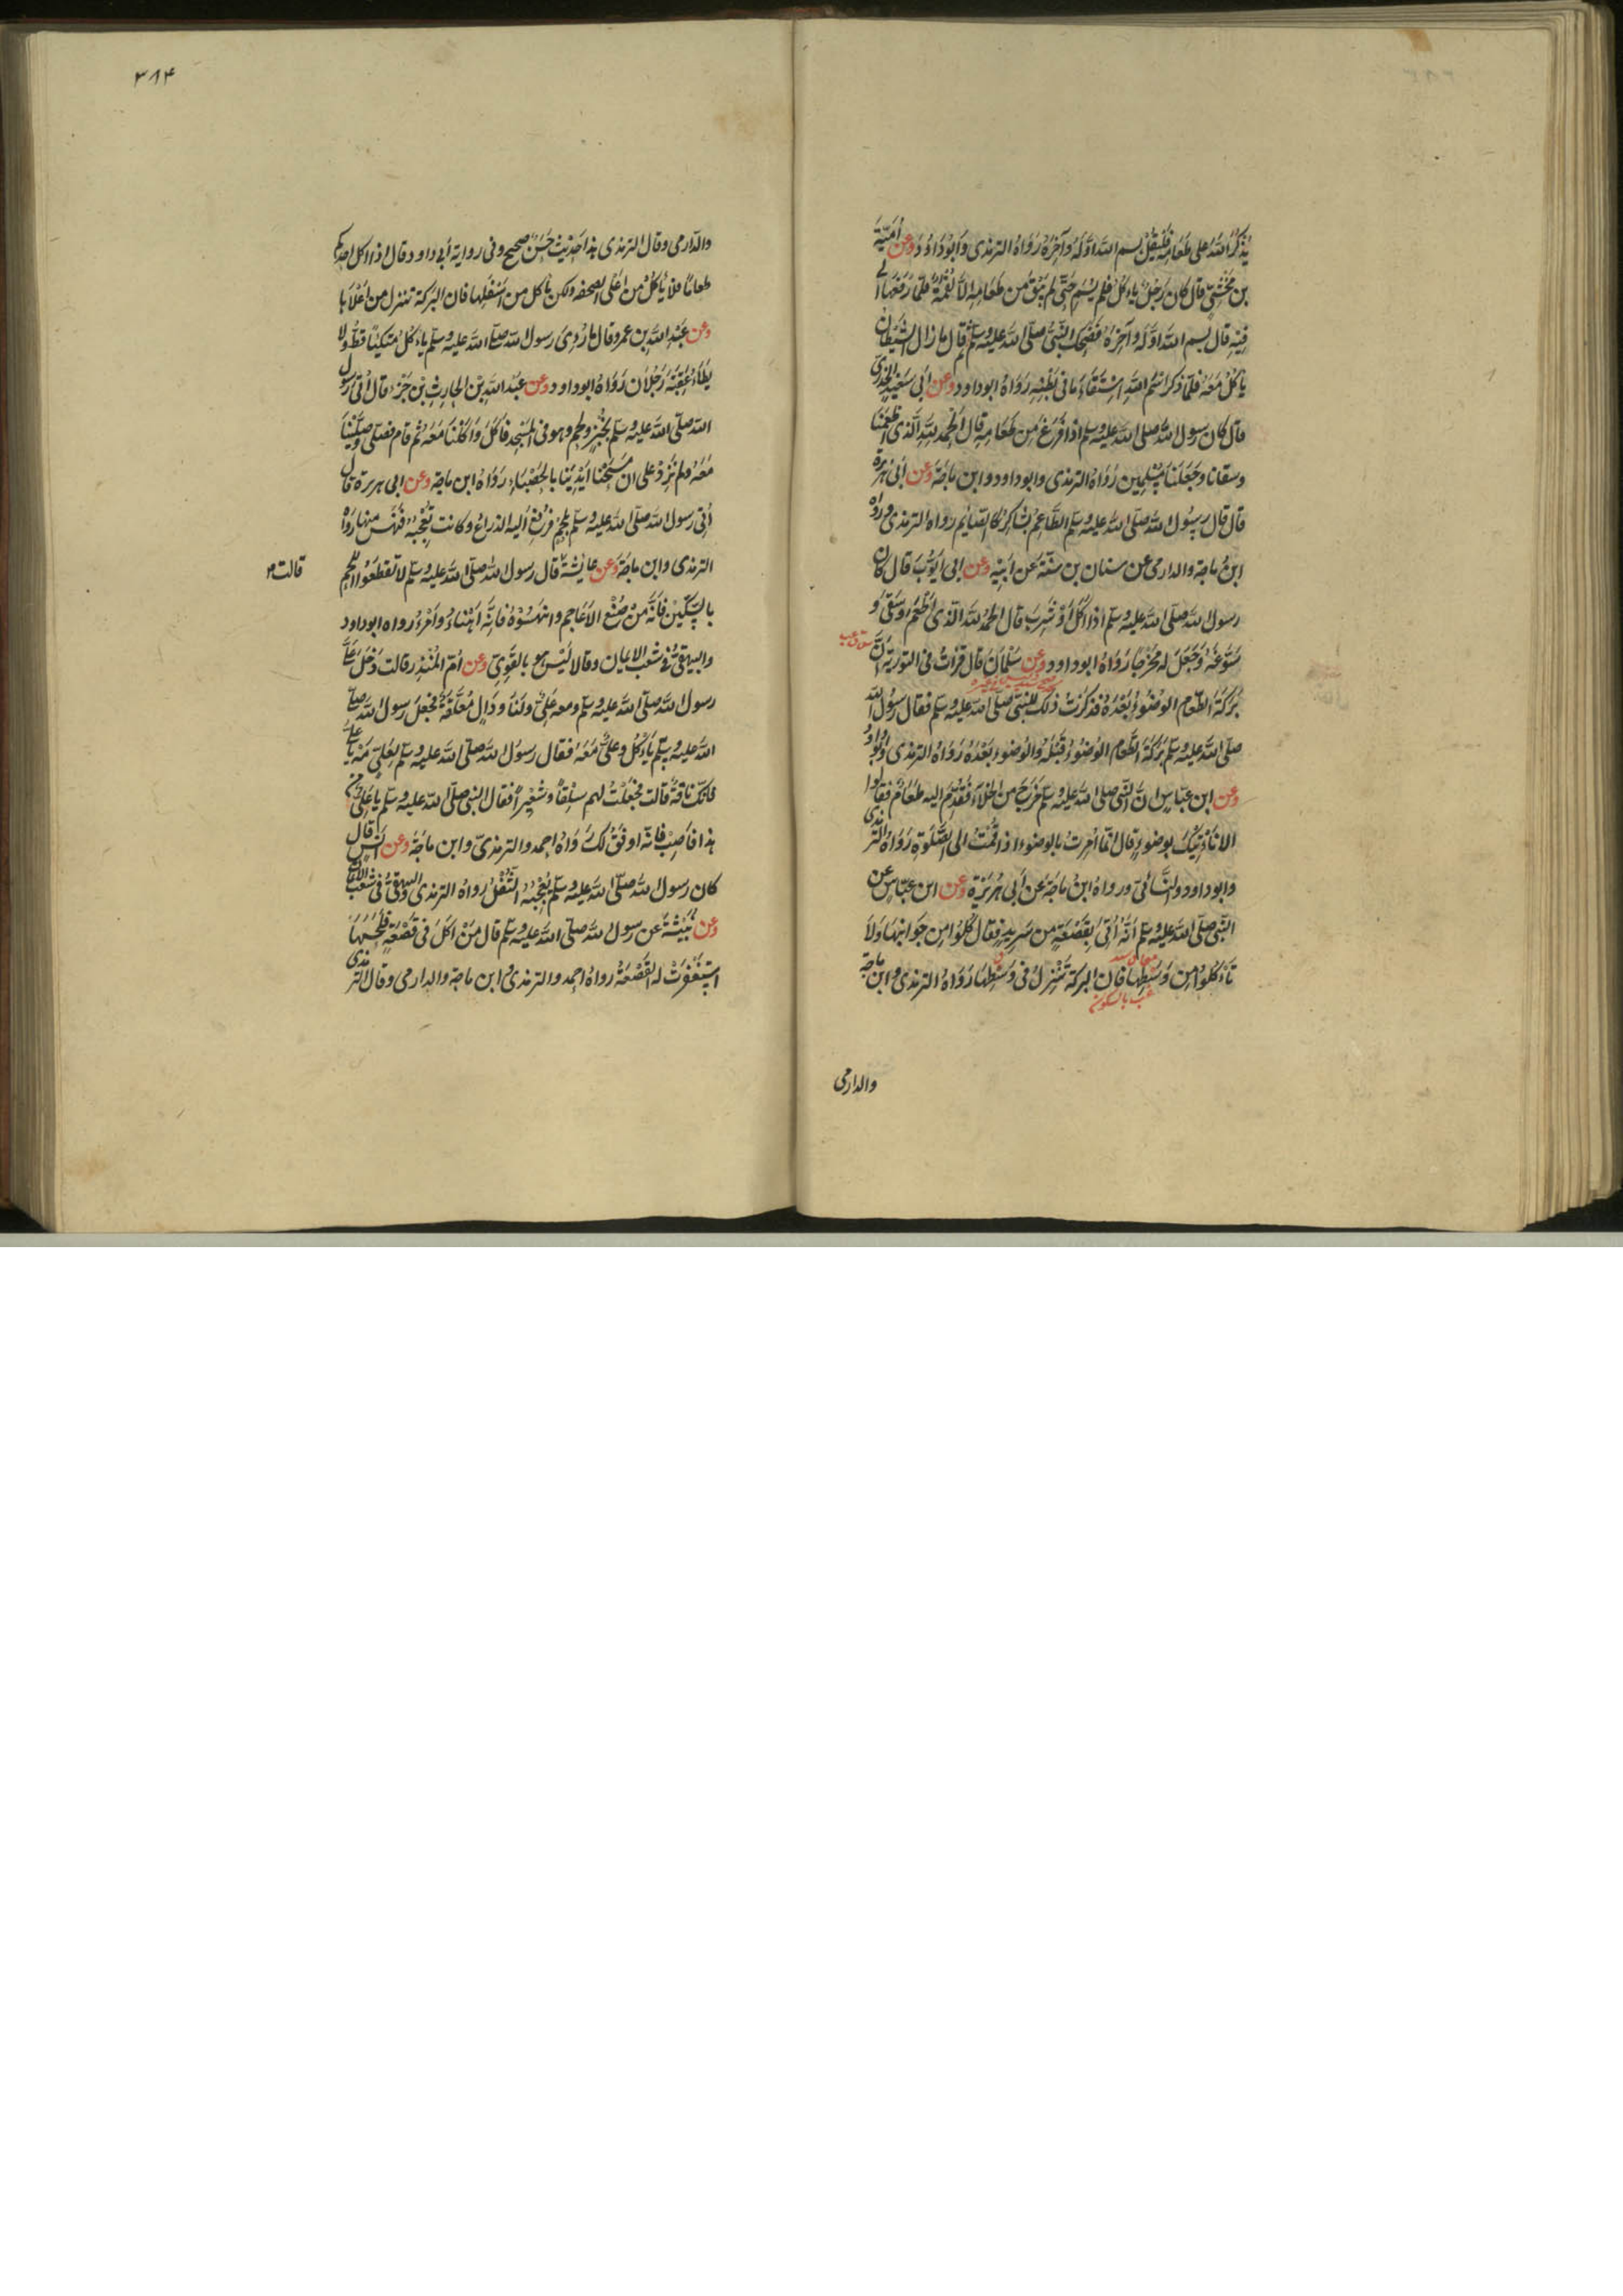 يذكر الله على طعامه فليقل بسم الله اوله وآخره رواه الترمذى وابوداود وعن امية
بن مخشي قال كان رجل ياءكل فلم يسم حتى لم يبق من طعامه الا لقمة فلما رفعها الى
فيه قال بسم الله اوله وآخره فضحك النبى صلى الله عليه وسلم ثم قال ما زال الشيطان
ياكل معه فلما ذكر اسم الله استقاء ما فى بطنه رواه ابوداود وعن ابى سعيد الخدرى
قال كان رسول الله صلى الله عليه وسلم اذا فرغ من طعامه قال الحمد لله الذى اطعمنا
وسقانا وجعلنا مسلمين رواه الترمذى وابوداود وابن ماجة وعن ابى هريرة
قال قال رسول الله صلى الله عليه وسلم الطاعم الشاكر كالصائم رواه الترمذى ورواه
ابن ماجة والدارمى عن سنان بن سنة عن ابيه وعن ابى ايوب قال كان
رسول الله صلى الله عليه وسلم اذا اكل او شرب قال الحمد لله الذى اطعم وسقى و
سوغه وجعل له مخرجا رواه ابوداود وعن سلمان قال قرات فى التورية ان
بركة الطعام الوضوء بعده فذكرت ذلك للنبى صلى الله عليه وسلم فقال رسول الله
صلى الله عليه وسلم بركة الطعام الوضوء قبله والوضوء بعده رواه الترمذى وابوداود
وعن ابن عباس ان النبى صلى الله عليه وسلم خرج من الخلاء فقدم اليه طعام فقالوا
الا ناءتيك بوضوء قال انما امرت بالوضوء اذا قمت الى الصلوة رواه الترمذى
وابوداود والنسائى ورواه ابن ماجة عن ابى هريرة وعن ابن عباس عن
النبى صلى الله عليه وسلم انه اتى بقصعة من سريد فقال كلوا من جوانبها ولا
تاءكلوا من وسطها فان البركة تنزل فى وسطها رواه الترمذى وابن ماجة
والدارمى
٣٨۴
والدارمى وقال الترمذى هذا حديث حسن صحيح وفى رواية ابى داود قال اذا اكل احدكم
طعاما فلا ياكل من اعلى الصحفه ولكن ياكل من اسفلها فان البركة تنزل من اعلاها
وعن عبد الله بن عمرو قال ما رؤى رسول الله صلى الله عليه وسلم ياءكل متكيا قط ولا
يطاء عقبه رجلان رواه ابوداود وعن عبد الله بن الحارث بن جزء قال اتى رسول
الله صلى الله عليه وسلم بخبز ولحم وهو فى المسجد فاكل واكلنا معه ثم قام فصلى وصلينا
معه ولم نزد على ان مسحنا ايدينا بالحصباء رواه ابن ماجة وعن ابى هريرة قال
اتى رسول الله صلى الله عليه وسلم بلحم فرفع اليه الذراع وكانت تعجبه فنهس منها رواه
الترمذى وابن ماجة وعن عايشة قال رسول الله صلى الله عليه وسلم لا تقطعوا اللحم
قالت
بالسكين فانه من صنع الاعاجم وانهسوه فانه اهناء وامرء رواه ابوداود
والبيهقى فى شعب الايمان وقالا ليس هو بالقوى وعن ام المنذر قالت دخل على
رسول الله صلى الله عليه وسلم ومعه على ولنا دوال معلقة فجعل رسول الله صلى
الله عليه وسلم ياءكل وعلى معه فقال رسول الله صلى الله عليه وسلم لعلى مه يا على
فانك ناقه قالت فجعلت لهم سلقا وشعيرا فقال النبى صلى الله عليه وسلم يا على من
هذا فاصب فانه اوفق لك رواه احمد والترمذى وابن ماجة وعن انس قال
كان رسول الله صلى الله عليه وسلم يعجبه الثفل رواه الترمذى والبيهقى فى شعب الايمان
وعن نبيشة عن رسول الله صلى الله عليه وسلم قال من اكل فى قصعة فلحسها
استغفرت له القصعة رواه احمد والترمذى وابن ماجة والدارمى وقال الترمذى